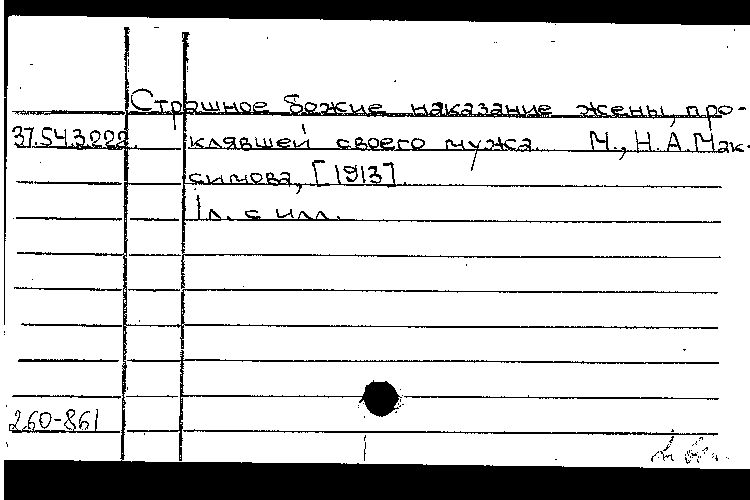 Страшное божие наказание жены, про-
37.54.3.222. клявшей своего мужа. М., Н.А. Мак-
симова, [1913].
1 л. с илл.
260-861